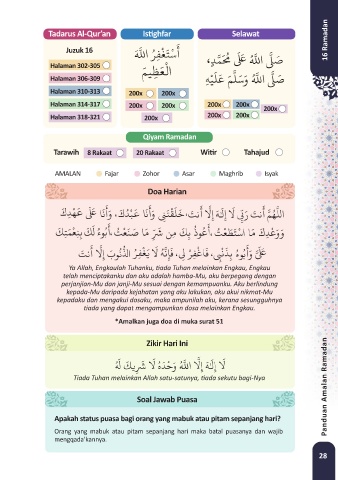 Tadarus Al-Qur'an
Istighfar
Selawat
Juzuk 16
Halaman 302-305
Halaman 306-309
Halaman 310-313
Halaman 314-317
Halaman 318-321
أَسْتَغْفِرُ اللَّهَ
الْعَظِيمَ
200x 200x
200x 200x
200x
صَلَّى اللَّهُ عَلَىٰ مُحَمَّدٍ،
صَلَّى اللَّهُ وَسَلَّمَ عَلَيْهِ
200x 200x
200x
200x 200x
Qiyam Ramadan
Tarawih 8 Rakaat 20 Rakaat Witir Tahajud
AMALAN Fajar Zohor Asar Maghrib Isyak
Doa Harian
اللَّهُمَّ أَنْتَ رَبِّي لَا إِلَـٰهَ إِلَّا أَنْتَ، خَلَقْتَنِي وَأَنَا عَبْدُكَ، وَأَنَا عَلَىٰ عَهْدِكَ
وَوَعْدِكَ مَا اسْتَطَعْتُ، أَعُوذُ بِكَ مِنْ شَرِّ مَا صَنَعْتُ، أَبُوءُ لَكَ بِنِعْمَتِكَ
عَلَيَّ وَأَبُوءُ بِذَنْبِي، فَاغْفِرْ لِي، فَإِنَّهُ لَا يَغْفِرُ الذُّنُوبَ إِلَّا أَنْتَ
Ya Allah, Engkaulah Tuhanku, tiada Tuhan melainkan Engkau, Engkau
telah menciptakanku dan aku adalah hamba-Mu, aku berpegang dengan
perjanjian-Mu dan janji-Mu sesuai dengan kemampuanku. Aku berlindung
kepada-Mu daripada kejahatan yang aku lakukan, aku akui nikmat-Mu
kepadaku dan mengakui dosaku, maka ampunilah aku, kerana sesungguhnya
tiada yang dapat mengampunkan dosa melainkan Engkau.
*Amalkan juga doa di muka surat 51
Zikir Hari Ini
لَا إِلَـٰهَ إِلَّا اللَّهُ وَحْدَهُ لَا شَرِيكَ لَهُ
Tiada Tuhan melainkan Allah satu-satunya, tiada sekutu bagi-Nya
Soal Jawab Puasa
Apakah status puasa bagi orang yang mabuk atau pitam sepanjang hari?
Orang yang mabuk atau pitam sepanjang hari maka batal puasanya dan wajib
mengqada'kannya.
16 Ramadan
Panduan Amalan Ramadan
28